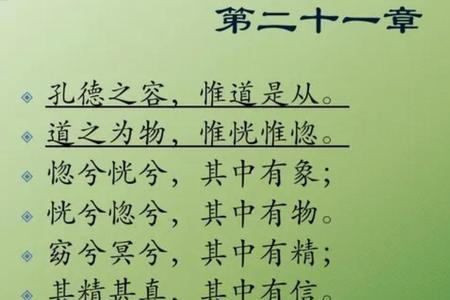 第二十一章
孔德之容，惟道是从。
道之为物，惟恍惟惚。
惚兮恍兮，其中有象；
恍兮惚兮，其中有物。
窈兮冥兮，其中有精；
其精甚真，其中有信。